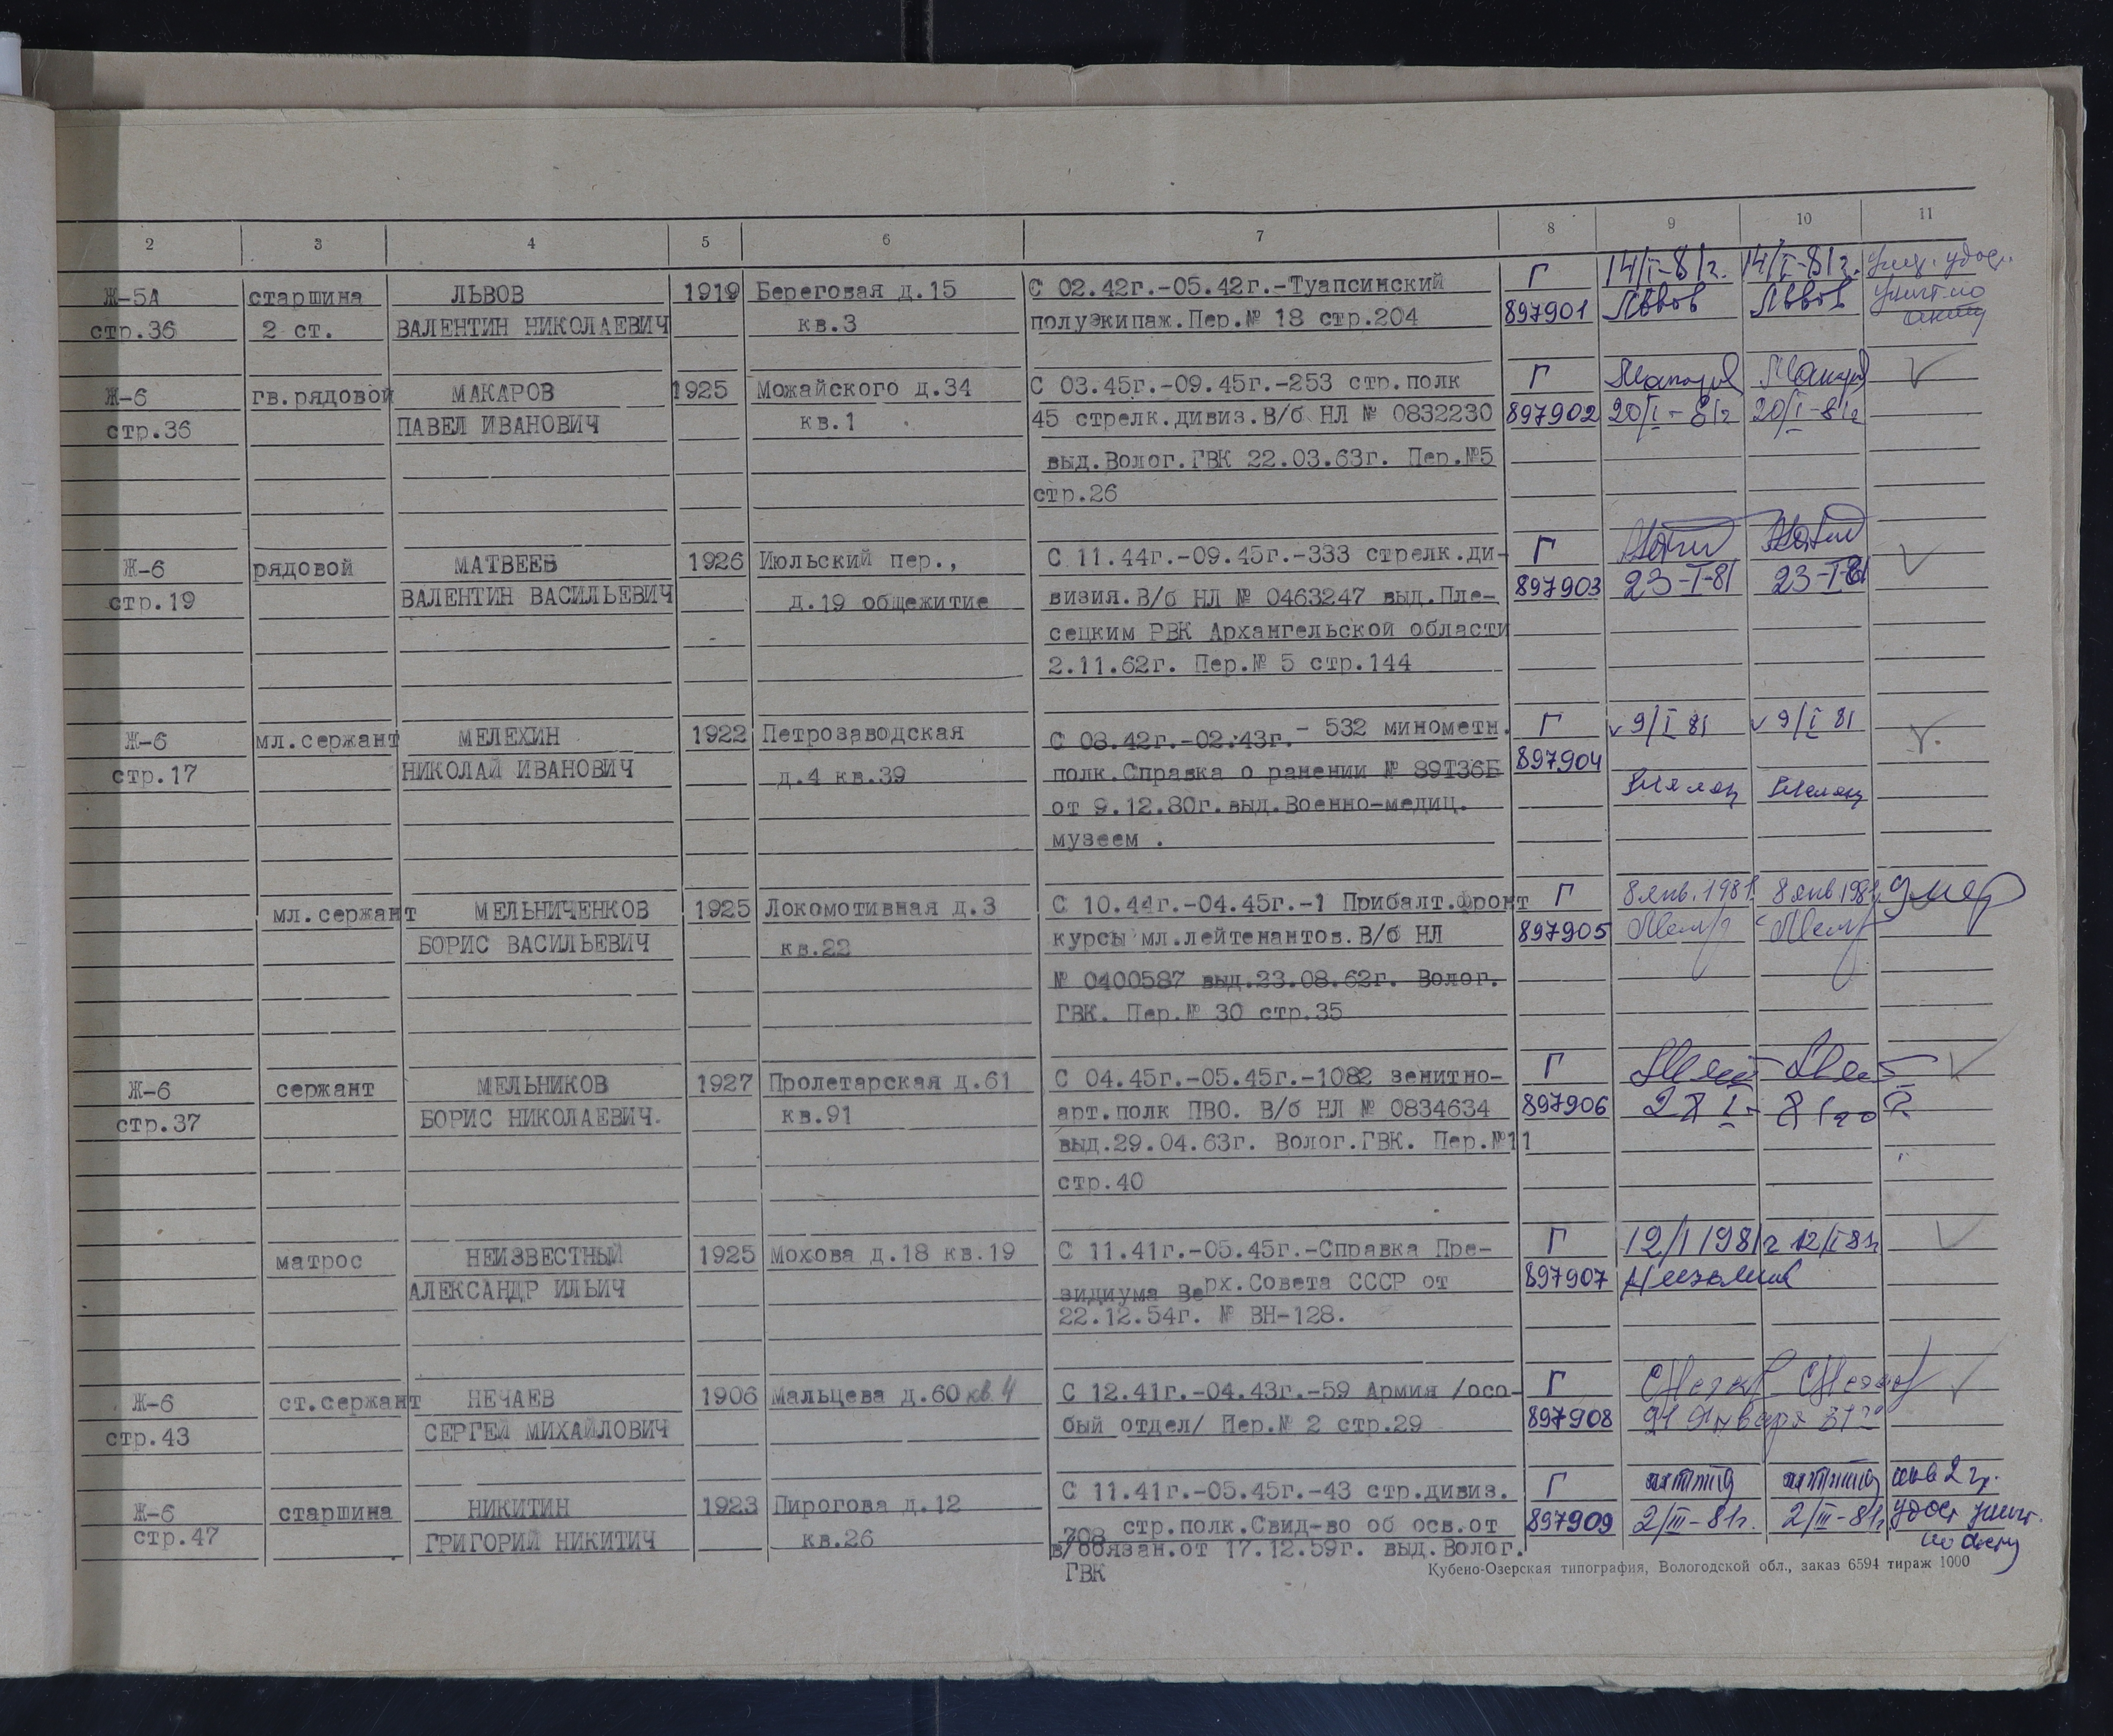 2 3 4 5 6 7 8 9 10 11
Ж-5А старшина ЛЬВОВ 1919 Береговая д.15 С 02.42г.-05.42г.-Туапсинский Г 14/I-81г. 14/I-81г.
стр.36 2 ст. ВАЛЕНТИН НИКОЛАЕВИЧ кв.3 полуэкипаж.Пер.№ 18 стр.204 897901 Львов Львов
Ж-6 гв.рядовой МАКАРОВ 1925 Можайского д.34 С 03.45г.-09.45г.-253 стр.полк Г
стр.36 ПАВЕЛ ИВАНОВИЧ кв.1 45 стрелк.дивиз.В/б НЛ № 0832230 897902 20/I-81г 20/I-81г
выд.Волог.ГВК 22.03.63г. Пер.№5
стр.26
Ж-6 рядовой МАТВЕЕВ 1926 Июльский пер., С 11.44г.-09.45г.-333 стрелк.ди- Г
стр.19 ВАЛЕНТИН ВАСИЛЬЕВИЧ д.19 общежитие визия.В/б НЛ № 0463247 выд.Пле- 897903 23-I-81 23-I-81
сецким РВК Архангельской области
2.11.62г. Пер.№ 5 стр.144
Ж-6 мл.сержант МЕЛЕХИН 1922 Петрозаводская С 08.42г.-02.43г.- 532 минометн. Г 9/I 81 9/I 81
стр.17 НИКОЛАЙ ИВАНОВИЧ д.4 кв.39 полк.Справка о ранении № 89Т36Б 897904
от 9.12.80г.выд.Военно-медиц.
музеем .
мл.сержант МЕЛЬНИЧЕНКОВ 1925 Локомотивная д.3 С 10.44г.-04.45г.-1 Прибалт.фронт Г 8 янв.1981 8 янв 1981 умер
БОРИС ВАСИЛЬЕВИЧ кв.22 курсы мл.лейтенантов.В/б НЛ 897905
№ 0400587 выд.23.08.62г. Волог.
ГВК. Пер.№ 30 стр.35
Ж-6 сержант МЕЛЬНИКОВ 1927 Пролетарская д.61 С 04.45г.-05.45г.-1082 зенитно- Г
стр.37 БОРИС НИКОЛАЕВИЧ. кв.91 арт.полк ПВО. В/б НЛ № 0834634 897906
выд.29.04.63г. Волог.ГВК. Пер.№11
стр.40
матрос НЕИЗВЕСТНЫЙ 1925 Мохова д.18 кв.19 С 11.41г.-05.45г.-Справка Пре- Г 12/I 1981г 12/I 81г
АЛЕКСАНДР ИЛЬИЧ зидиума Верх.Совета СССР от 897907
22.12.54г. № ВН-128.
Ж-6 ст.сержант НЕЧАЕВ 1906 Мальцева д.60 кв.4 С 12.41г.-04.43г.-59 Армия /осо- Г
стр.43 СЕРГЕЙ МИХАЙЛОВИЧ бый отдел/ Пер.№ 2 стр.29 897908 Января
Ж-6 старшина НИКИТИН 1923 Пирогова д.12 С 11.41г.-05.45г.-43 стр.дивиз. Г
стр.47 ГРИГОРИЙ НИКИТИЧ кв.26 708 стр.полк.Свид-во об осв.от 897909 2/III-81г. 2/III-81г
в/обязан.от 17.12.59г. выд.Волог.
ГВК
Кубено-Озерская типография, Вологодской обл., заказ 6594 тираж 1000